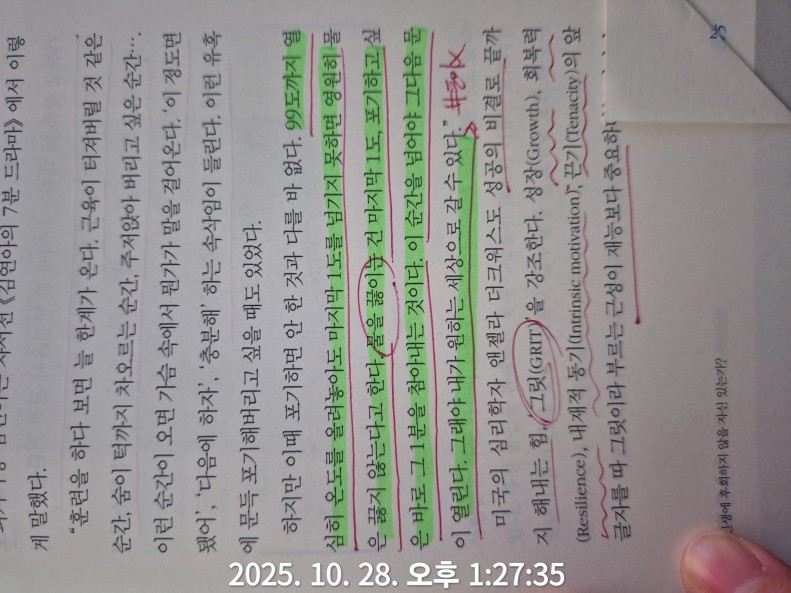 자서전 《김연아의 7분 드라마》에서 이렇
게 말했다.
"훈련을 하다 보면 늘 한계가 온다. 근육이 터져버릴 것 같은
순간, 숨이 턱까지 차오르는 순간, 주저앉아 버리고 싶은 순간…
이런 순간이 오면 가슴 속에서 뭔가가 말을 걸어온다. '이 정도면
됐어', '다음에 하자', '충분해' 하는 속삭임이 들린다. 이런 유혹
에 문득 포기해버리고 싶을 때도 있었다.
하지만 이때 포기하면 안 한 것과 다를 바 없다. 99도까지 열
심히 온도를 올려놓아도 마지막 1도를 넘기지 못하면 영원히 물
은 끓지 않는다고 한다. 물을 끓이는 건 마지막 1도, 포기하고 싶
은 바로 그 1분을 참아내는 것이다. 이 순간을 넘어야 그다음 문
이 열린다. 그래야 내가 원하는 세상으로 갈 수 있다."
미국의 심리학자 앤젤라 더크워스도 성공의 비결로 끝까
지 해내는 힘, '그릿(GRIT)'을 강조한다. 성장(Growth), 회복력
(Resilience), 내재적 동기(Intrinsic motivation), 끈기(Tenacity)의 앞
글자를 따 그릿이라 부르는 근성이 재능보다 중요하
고생에 후회하지 않을 자신 있는가?
25
2025. 10. 28. 오후 1:27:35